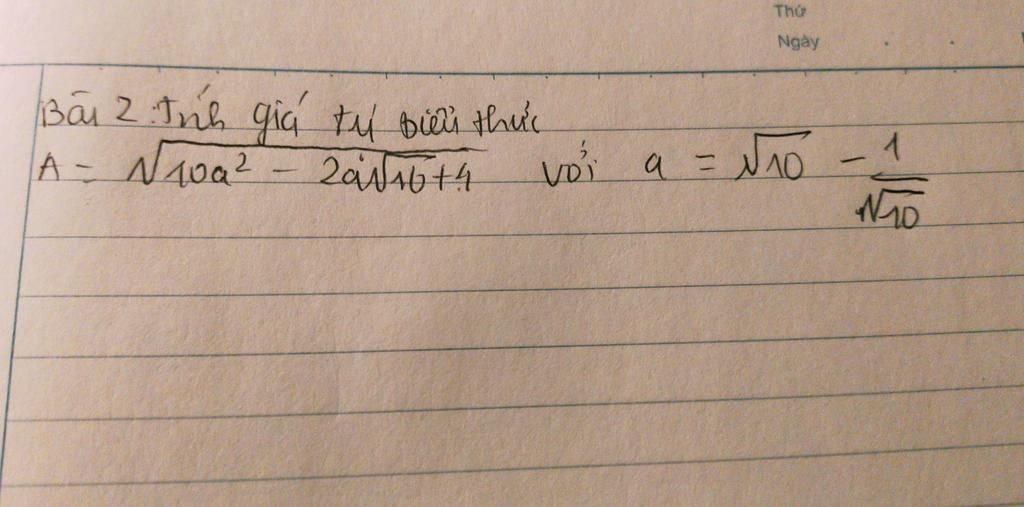 Thứ
Ngày
Bài 2: Tính giá trị biểu thức
A = √10a² - 2a√10 + 4 với a = √10 - 1/√10